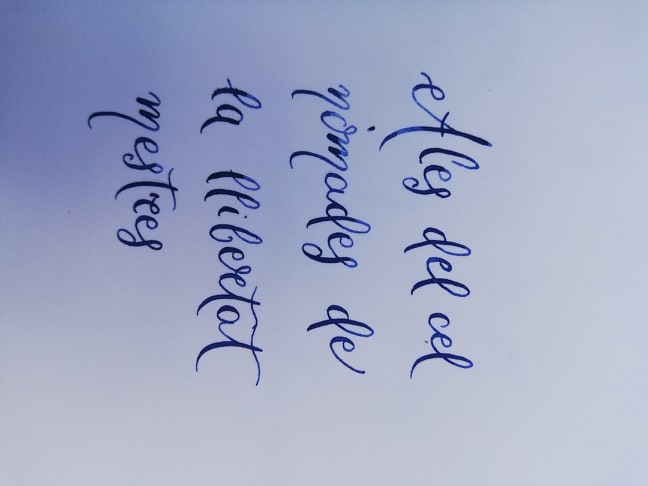 Ales del cel
nòmades de
la llibertat
mestres